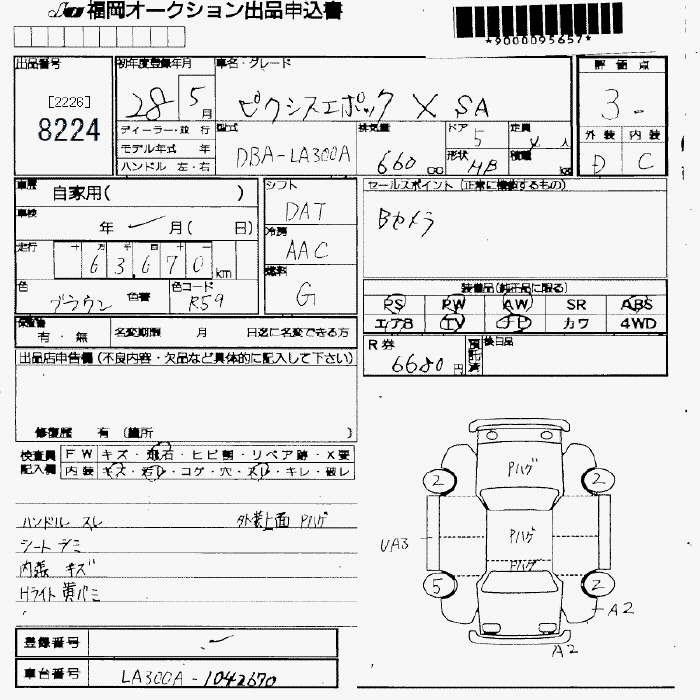 福岡オークション出品申込書
*9000095657*
出品番号 [2226] 8224
初年度登録年月 28 5月
車名・グレード ピクシスエポック X SA
評価点 3 -
外装 D 内装 C
ディーラー・並行
モデル年式 年
ハンドル 左・右
型式 DBA-LA300A
排気量 660 cc
ドア 5
定員 4 人
形状 HB
積載 kg
車歴 自家用( )
車検 年 月( 日)
走行 十 万 千 百 十 63,670 km
色 ブラウン 色番 色コード R59
シフト DAT
冷房 AAC
燃料 G
セールスポイント (正常に機能するもの)
Bカメラ
装備品(純正品に限る)
PS PW AW SR ABS
エアB TV ナビ カワ 4WD
保証書 有・無 名変期限 月 日迄に名変できる方
R券 6680円 預託済 後日品
出品店申告欄 (不良内容・欠品など具体的に記入して下さい)
修復歴 有 (箇所 )
検査員記入欄
FW キズ・飛石・ヒビ割・リペア跡・X要
内装 キズ・汚レ・コゲ・穴・スレ・キレ・破レ
ハンドル スレ 外装上面 Pハゲ
シート シミ
内張 キズ
Hライト 黄バミ
Pハゲ
2 2
UA3 Pハゲ
Pハゲ
5 2
A2
A2
登録番号
車台番号 LA300A-1042670